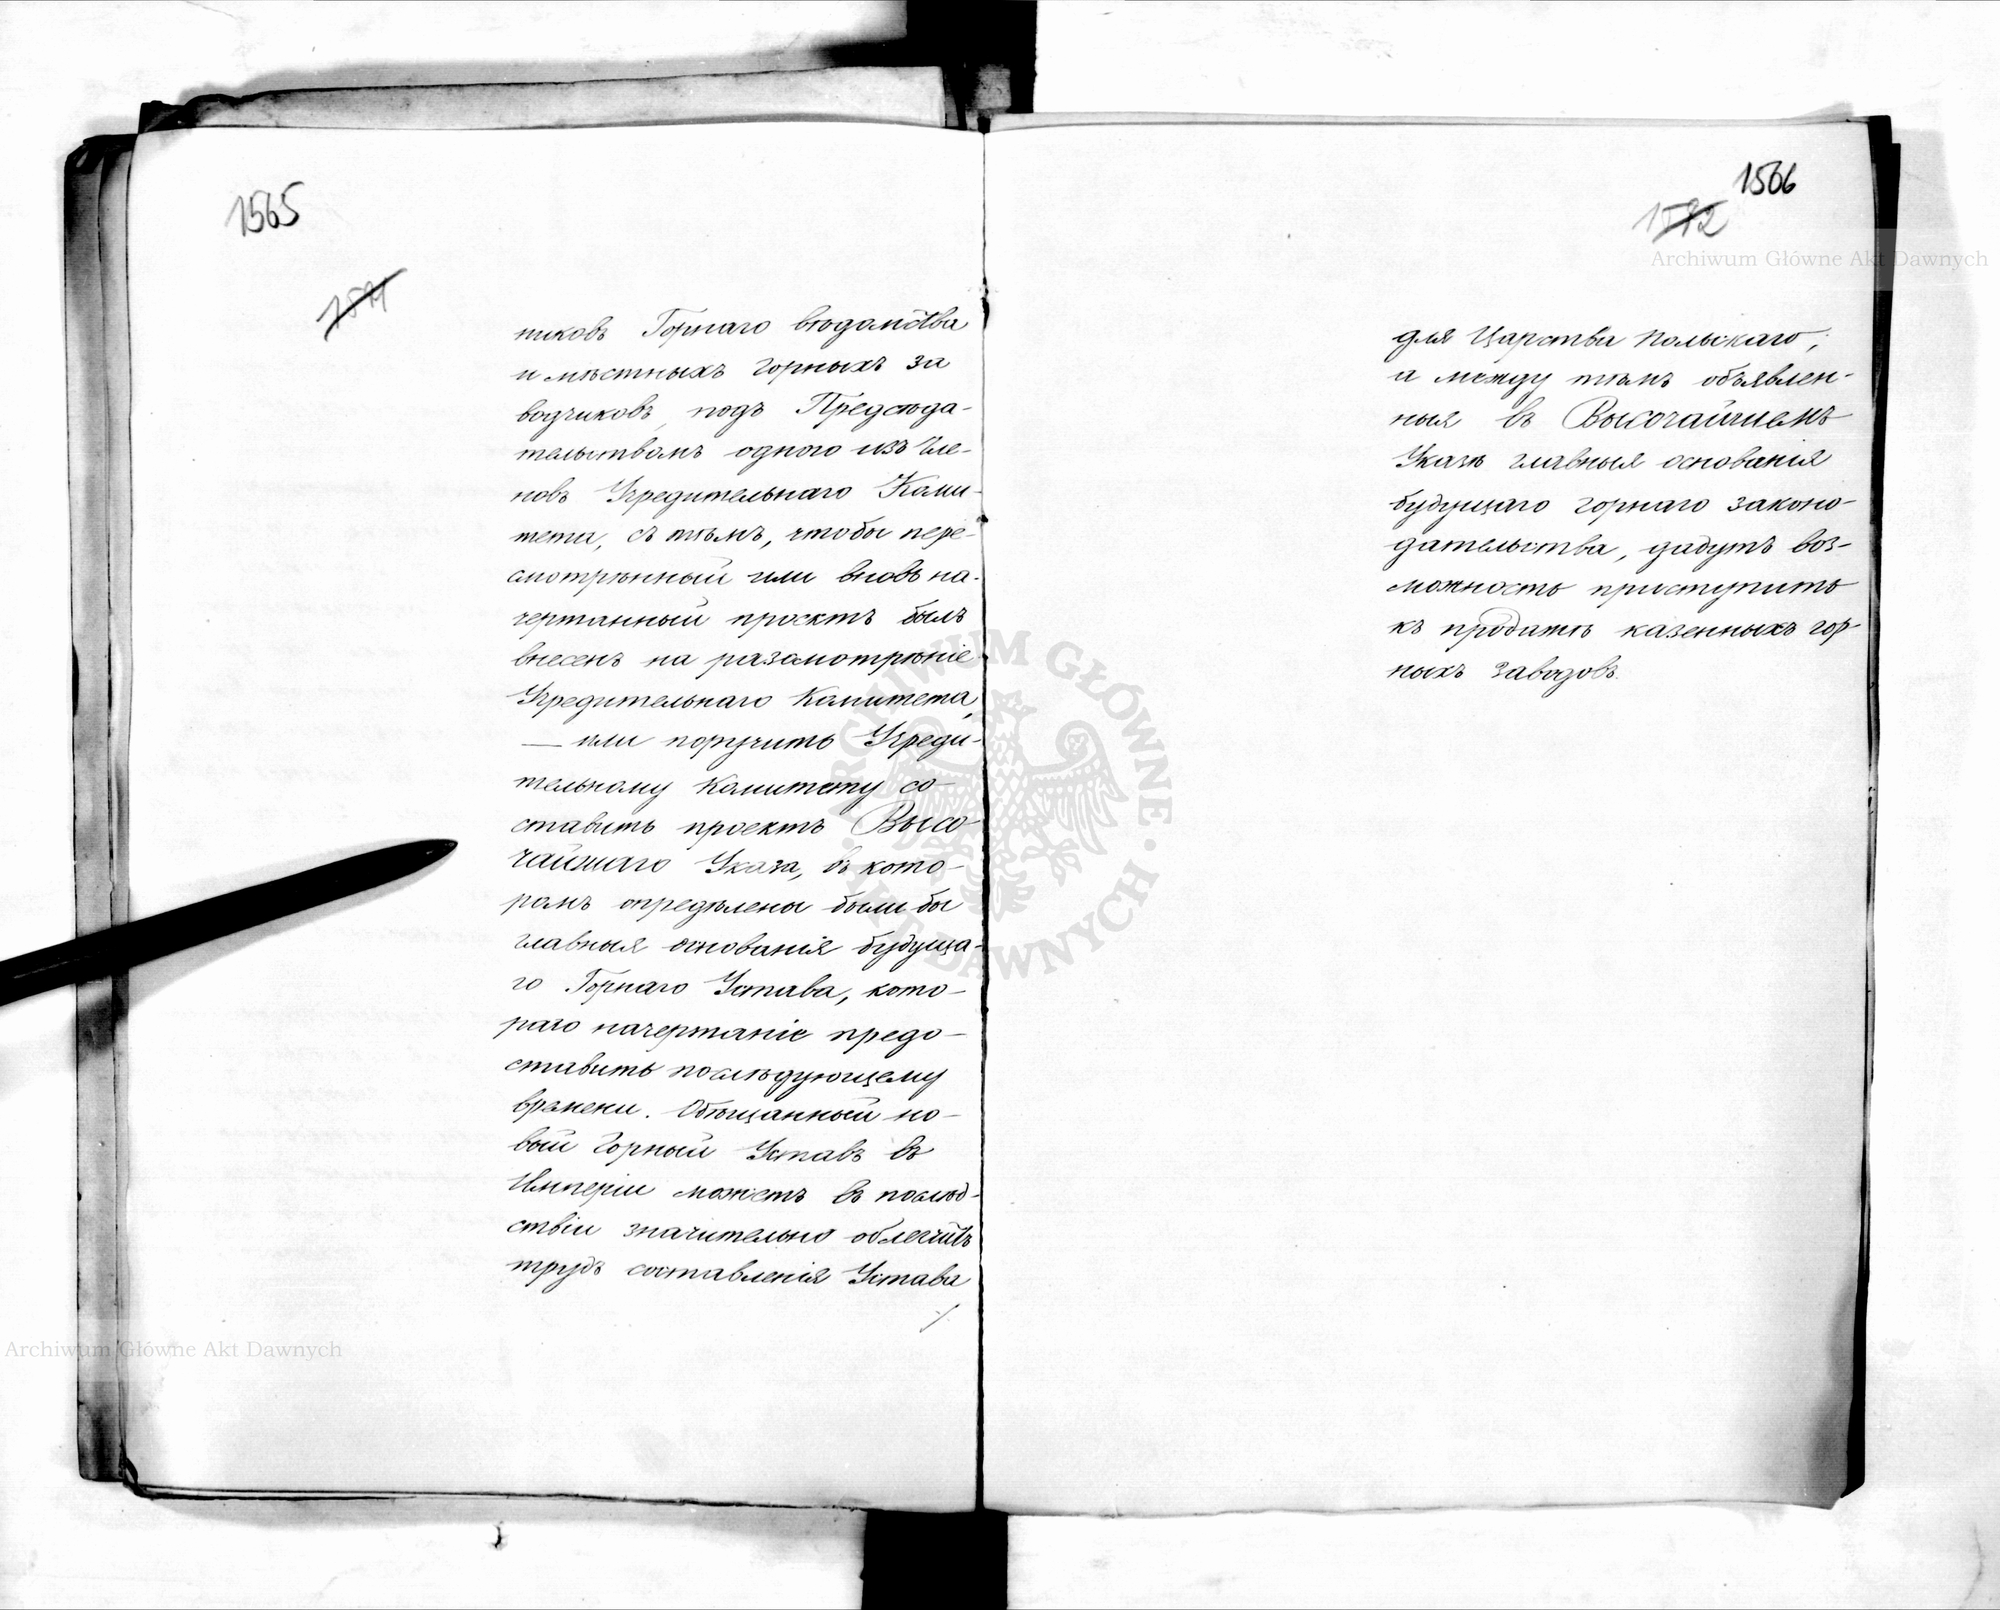 1565
никовъ Горнаго вѣдомства
и мѣстныхъ горныхъ за
водчиковъ, подъ Предсѣда-
тельствомъ одного изъ Чле-
новъ Учредительнаго Коми-
тета, съ тѣмъ, чтобы пере-
смотрѣнный или вновь на-
чертанный проектъ былъ
внесенъ на разсмотрѣніе
Учредительнаго Комитета,
— или поручить Учреди-
тельному Комитету со-
ставить проектъ Высо-
чайшаго Указа, въ кото-
ромъ опредѣлены были бы
главныя основанія будуща-
го Горнаго Устава, кото-
раго начертаніе предо-
ставить послѣдующему
времени. Обѣщанный но-
вый Горный Уставъ въ
Имперіи можетъ въ послѣд-
ствіи значительно облегчить
трудъ составленія Устава
1566
1572
для Царства Польскаго;
а между тѣмъ объявлен-
ныя въ Высочайшемъ
Указѣ главныя основанія
будущаго горнаго законо-
дательства, дадутъ воз-
можность приступить
къ продажѣ казенныхъ гор-
ныхъ заводовъ.
Archiwum Główne Akt Dawnych
Archiwum Główne Akt Dawnych
ARCHIWUM GŁÓWNE
DAWNYCH